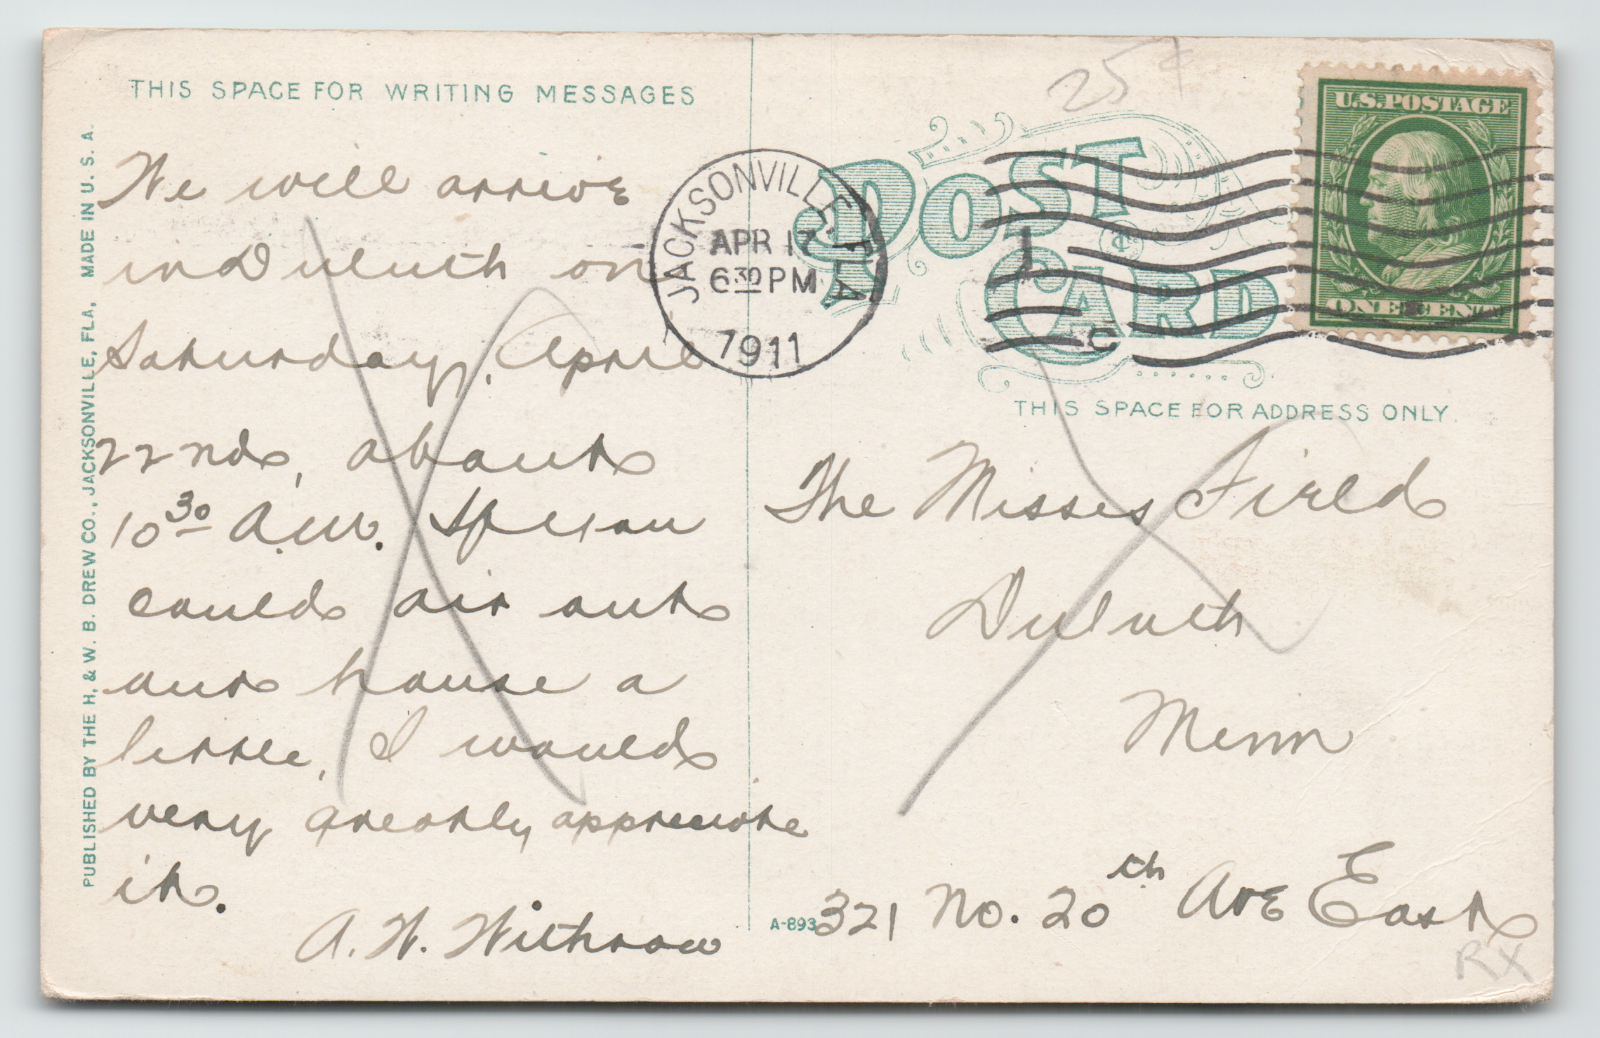 THIS SPACE FOR WRITING MESSAGES
We will arrive
in Duluth on
Saturday, April
22nd, about
10 30 A.M. If you
could air out
our house a
little, I would
very greatly appreciate
it.
A. W. Withrow
PUBLISHED BY THE H. & W. B. DREW CO., JACKSONVILLE, FLA. MADE IN U. S. A.
JACKSONVILLE, FLA
APR 17
6 30 PM
1911
25¢
POST
CARD
1
C
U.S. POSTAGE
ONE CENT
THIS SPACE FOR ADDRESS ONLY.
The Misses
Duluth
Minn
A-893
321 No. 20th Ave East
RX